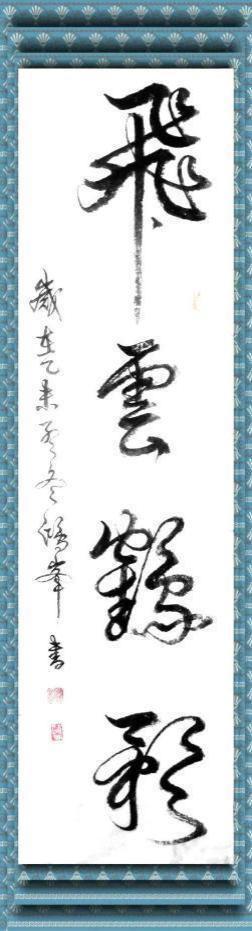 飛雲鶴影
歲在乙未冬峯書